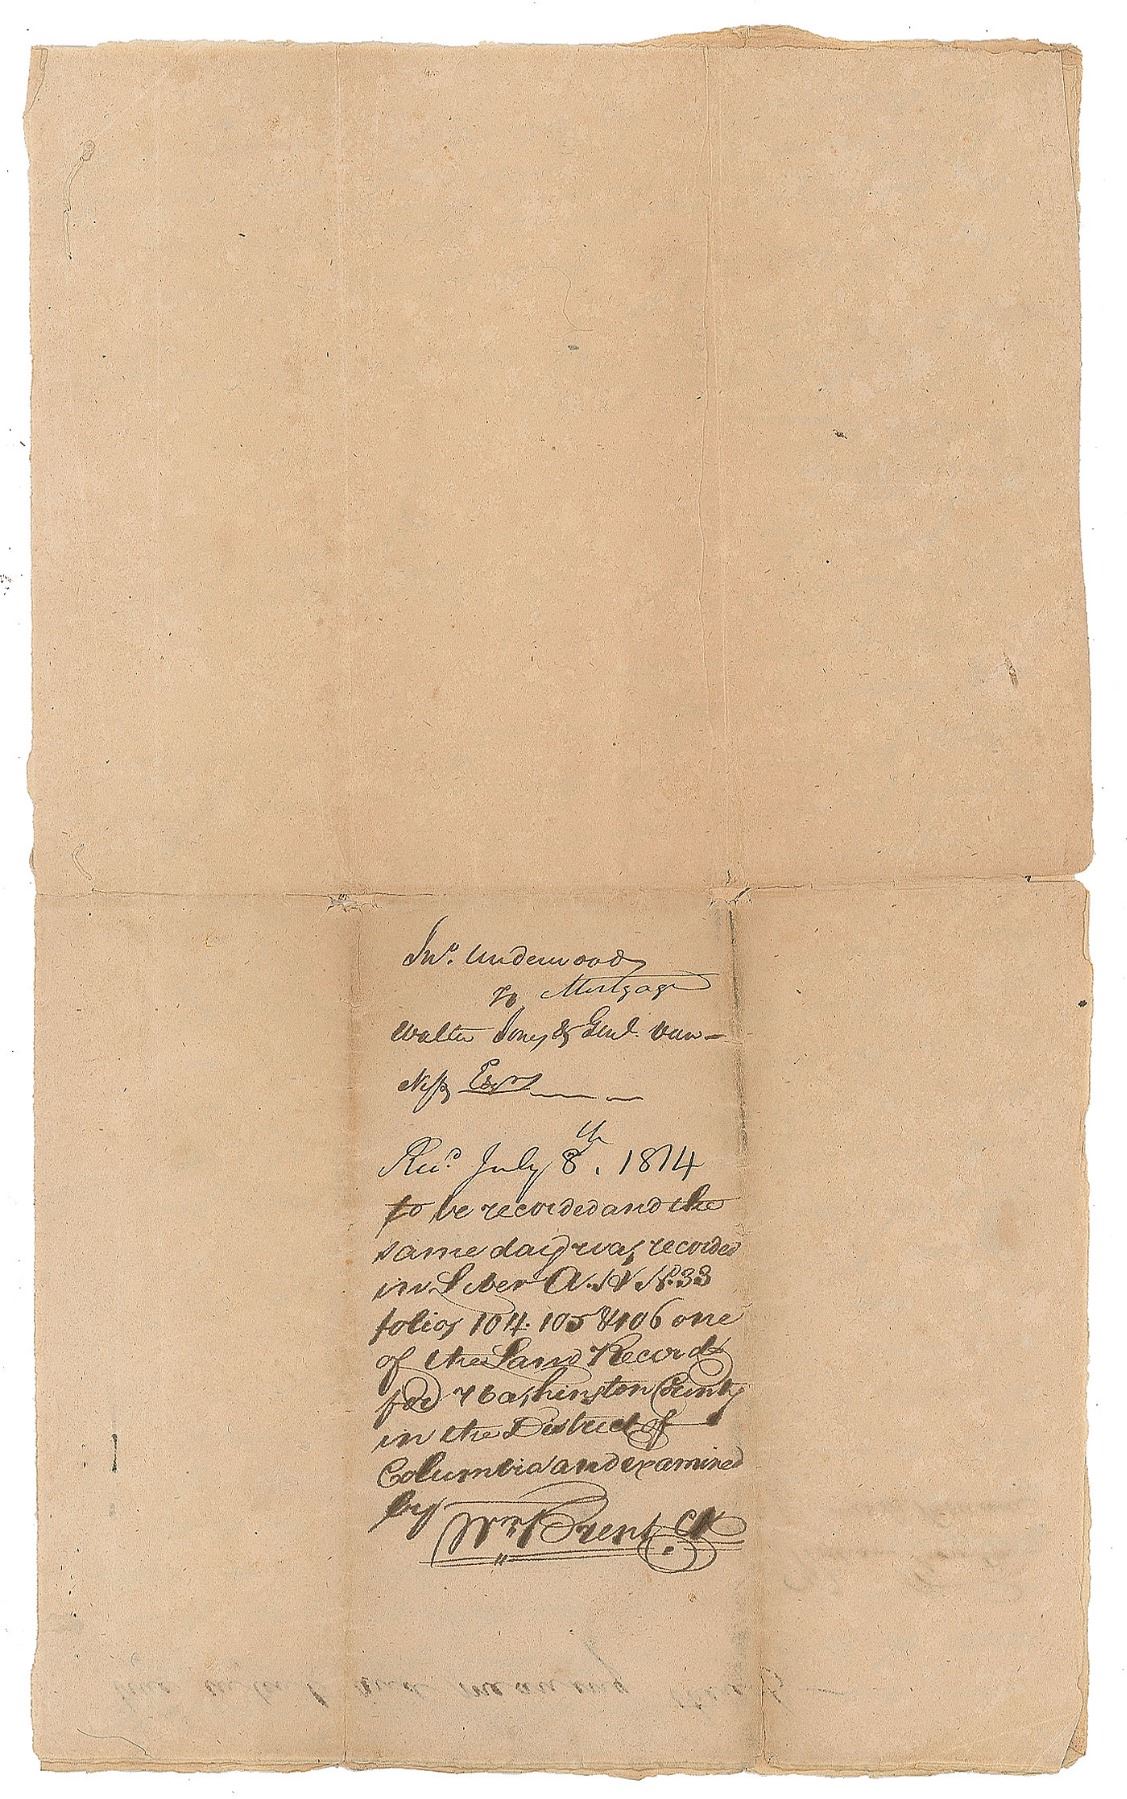 Jno. Underwood
To Mortgage
Walter Jones & Genl. Van-
Ness Esqrs
Recd. July 8th. 1814
to be recorded and the
same day was recorded
in Liber A. H N. 33
folios 104. 105 & 106 one
of the Land Records
for Washington County
in the District of
Columbia and examined
by Wm Brent Clk
true intent and meaning